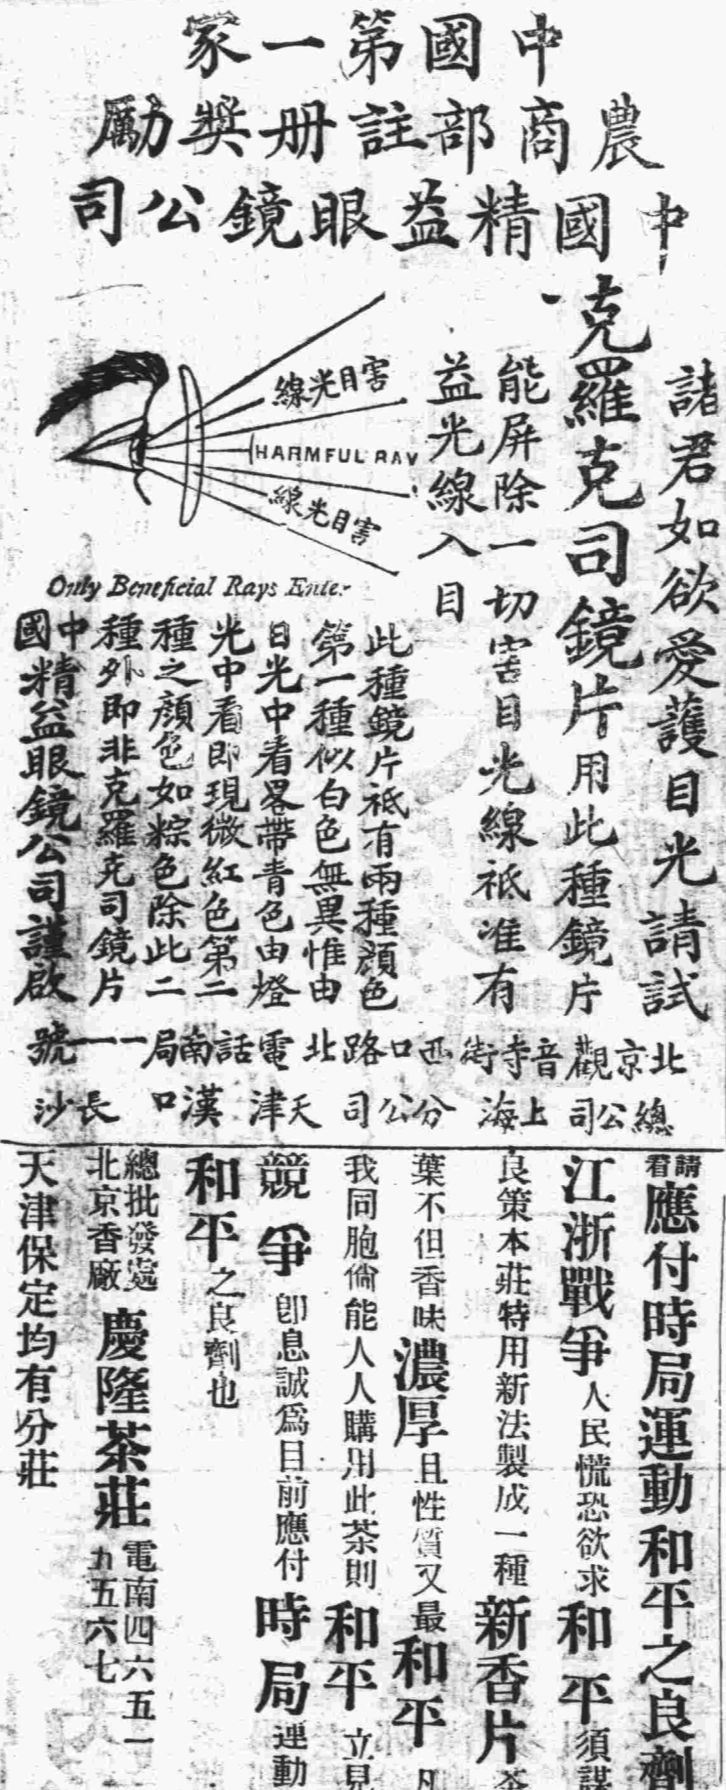 中國第一家
農商部註册獎勵
中國精益眼鏡公司
諸君如欲愛護目光請試
克羅克司鏡片用此種鏡片
能屏除一切害目光線祇准有
益光線入目
害目光線
HARMFUL RAY
害目光線
Only Beneficial Rays Enter
此種鏡片祇有兩種顏色
第一種似白色無異惟由
日光中看畧帶青色由燈
光中看即現微紅色第二
種之顏色如粽色除此二
種外即非克羅克司鏡片
中國精益眼鏡公司謹啟
北京觀音寺街西口路北電話南局一一號
總公司上海 分公司天津 漢口 長沙
請看應付時局運動和平之良劑
江浙戰爭人民慌恐欲求和平須謀
良策本莊特用新法製成一種新香片茶
葉不但香味濃厚且性質又最和平凡
我同胞倘能人人購用此茶則和平立見
競爭卽息誠爲目前應付時局運動
和平之良劑也
總批發處
北京香廠
慶隆茶莊
電南四六五一
九五六七
天津保定均有分莊